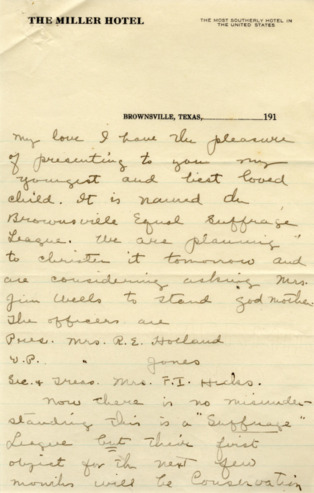 THE MILLER HOTEL
THE MOST SOUTHERLY HOTEL IN
THE UNITED STATES
BROWNSVILLE, TEXAS, 191
My love I have the pleasure
of presenting to you my
youngest and best loved
child. It is named the
Brownsville Equal Suffrage
League. We are planning
to christen it tomorrow and
are considering asking Mrs.
Jim Wells to stand god mother.
The officers are
Pres. Mrs. R. E. Holland
V.P. " Jones
Sec. & Treas. Mrs. F. I. Hicks.
Now there is no misunder-
standing this is a "Suffrage"
League but their first
object for the next few
months will be Conservation